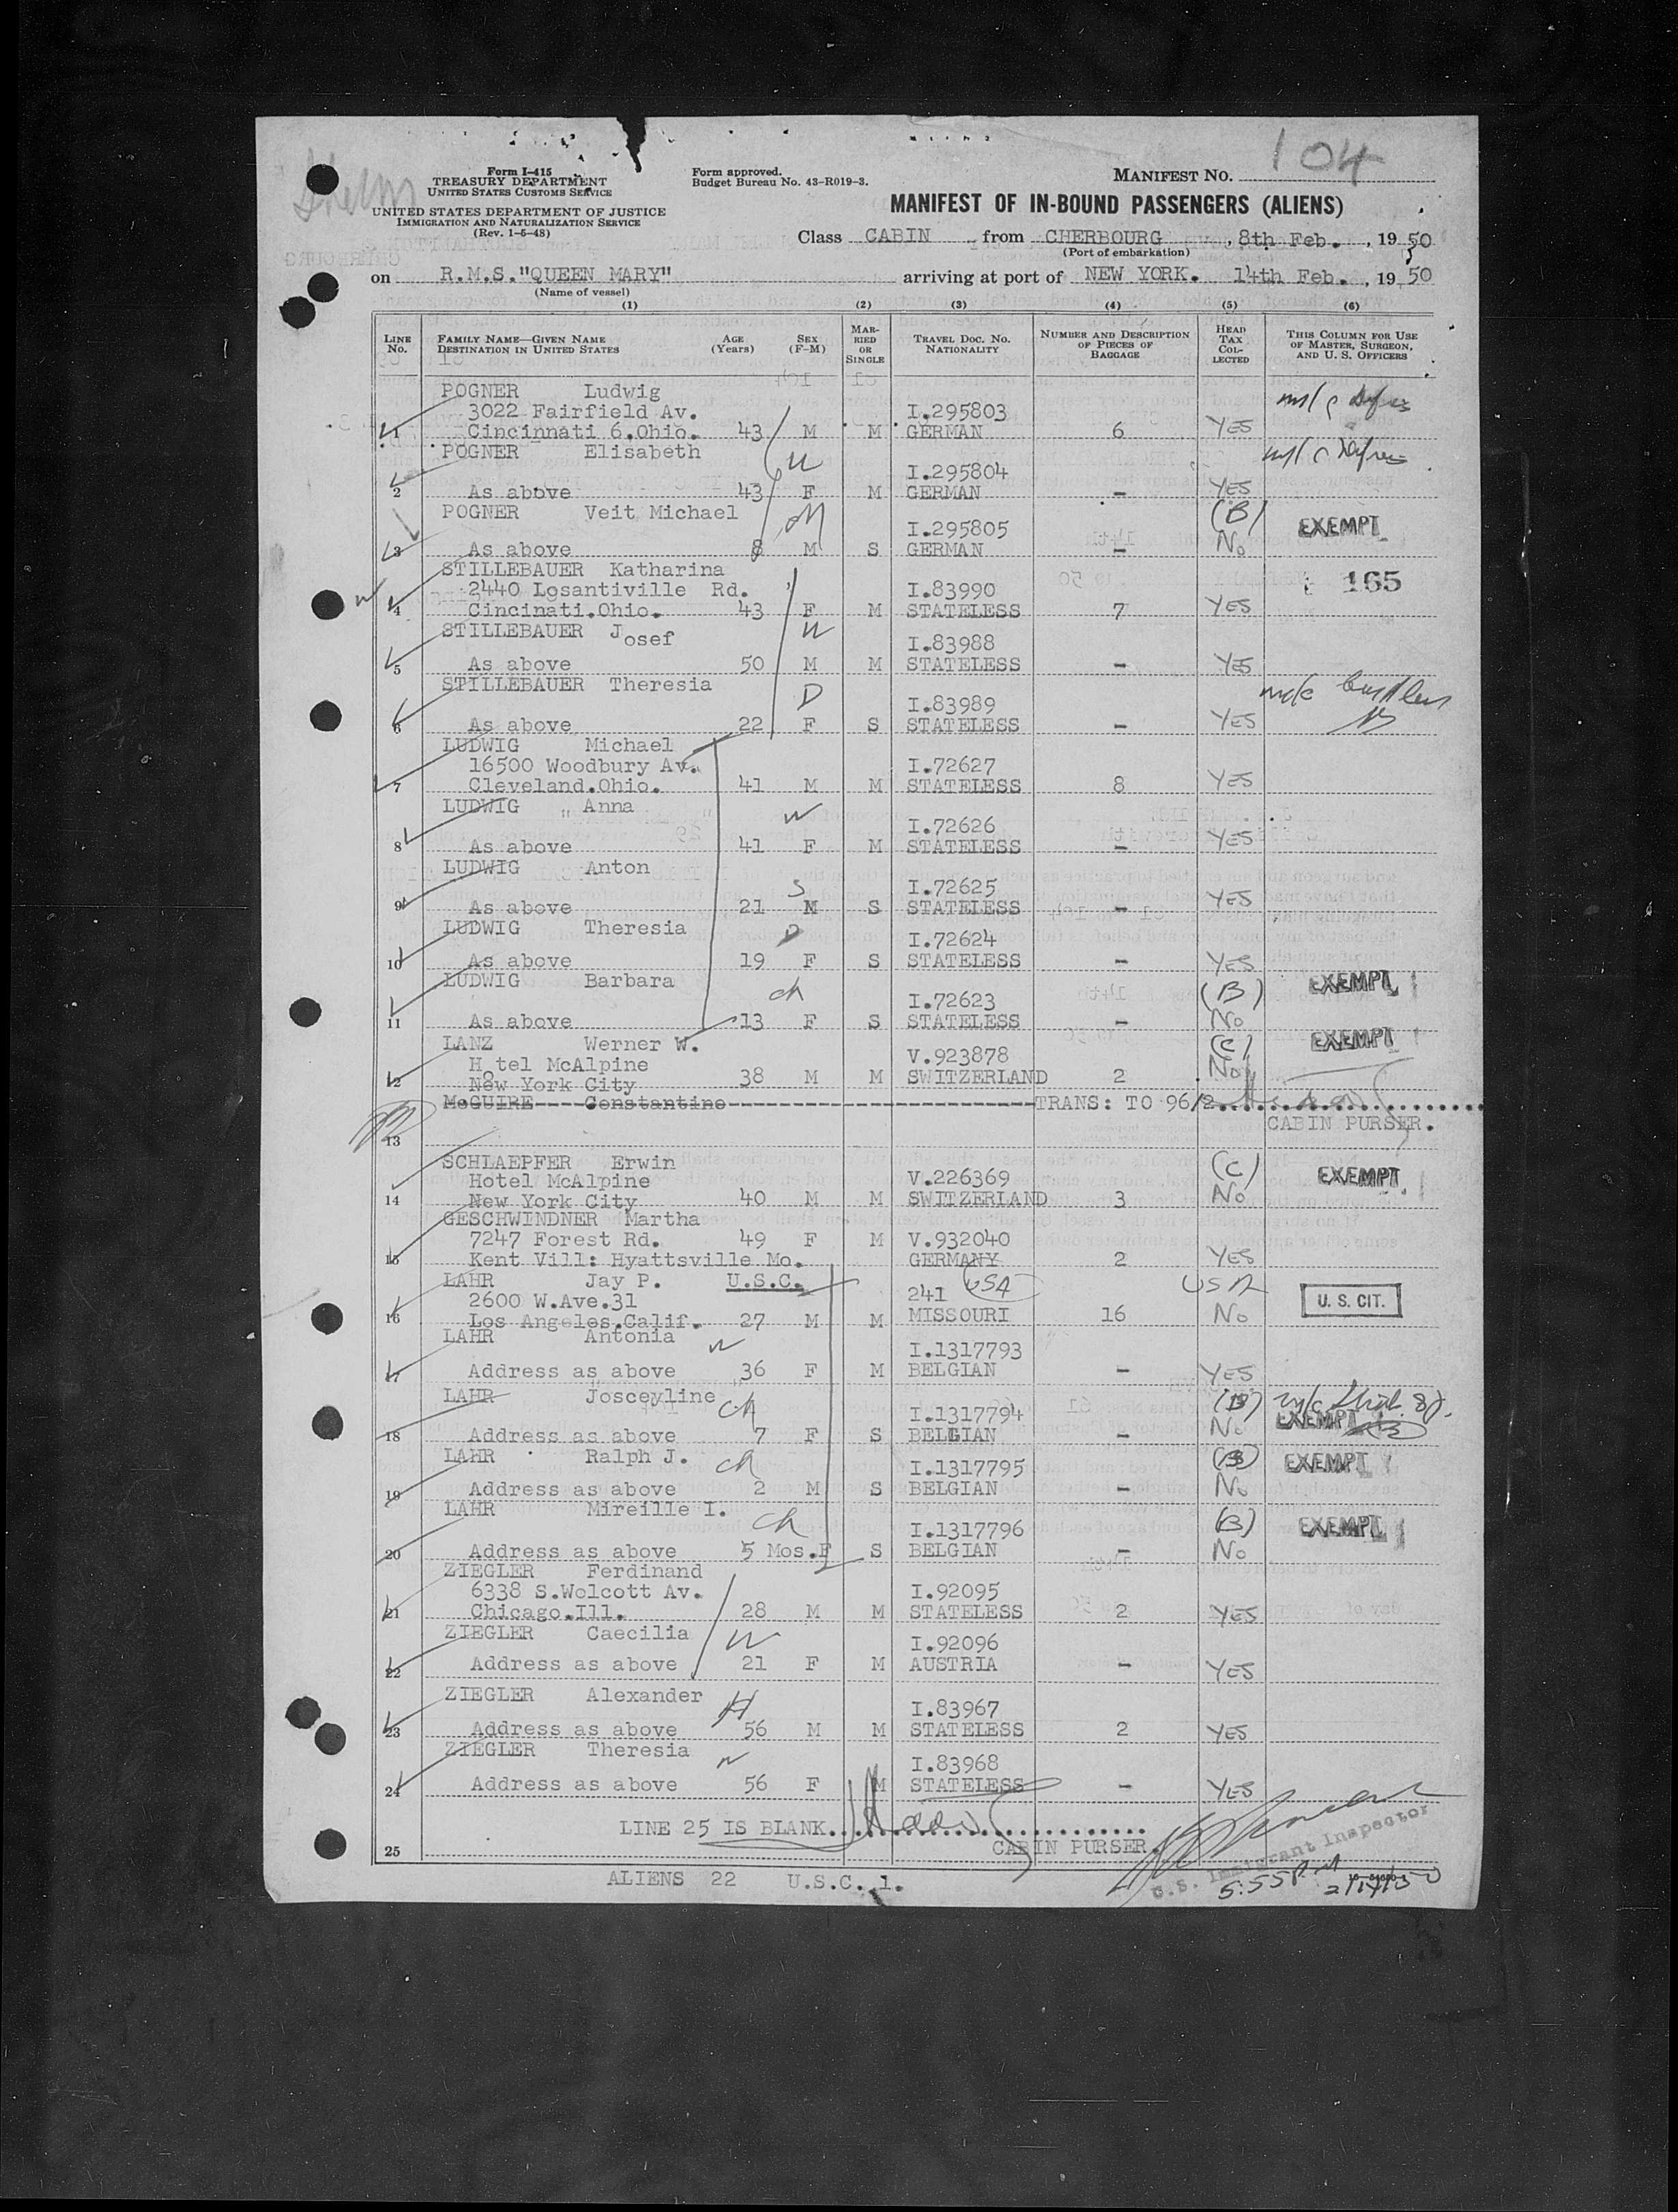 104
Form I-415
TREASURY DEPARTMENT
UNITED STATES CUSTOMS SERVICE
UNITED STATES DEPARTMENT OF JUSTICE
IMMIGRATION AND NATURALIZATION SERVICE
(Rev. 1-6-48)
Form approved.
Budget Bureau No. 43-R019-3.
MANIFEST NO.
MANIFEST OF IN-BOUND PASSENGERS (ALIENS)
Class CABIN from CHERBOURG, 8th Feb., 1950
(Port of embarkation)
on R.M.S."QUEEN MARY" arriving at port of NEW YORK. 14th Feb., 1950
(Name of vessel)
(1) (2) (3) (4) (5) (6)
LINE No. FAMILY NAME—GIVEN NAME DESTINATION IN UNITED STATES AGE (Years) SEX (F-M) MARRIED OR SINGLE TRAVEL DOC. NO. NATIONALITY NUMBER AND DESCRIPTION OF PIECES OF BAGGAGE HEAD TAX COLLECTED THIS COLUMN FOR USE OF MASTER, SURGEON, AND U. S. OFFICERS
POGNER Ludwig
3022 Fairfield Av. I.295803
1 Cincinnati 6.Ohio. 43 M M GERMAN 6 YES
POGNER Elisabeth
W I.295804
2 As above 43 F M GERMAN - YES
POGNER Veit Michael (B)
I.295805 EXEMPT
3 As above 8 M S GERMAN - No
STILLEBAUER Katharina
2440 Losantiville Rd. I.83990 165
4 Cincinati.Ohio. 43 F M STATELESS 7 YES
STILLEBAUER Josef W
I.83988
5 As above 50 M M STATELESS - YES
STILLEBAUER Theresia D
I.83989
6 As above 22 F S STATELESS - YES
LUDWIG Michael
16500 Woodbury Av. I.72627
7 Cleveland.Ohio. 41 M M STATELESS 8 YES
LUDWIG " Anna W
I.72626
8 As above 41 F M STATELESS - YES
LUDWIG Anton
S I.72625
9 As above 21 M S STATELESS - YES
LUDWIG Theresia D
I.72624
10 As above 19 F S STATELESS - YES
LUDWIG Barbara ch (B) EXEMPT
I.72623
11 As above 13 F S STATELESS - No
LANZ Werner W. (C) EXEMPT
Hotel McAlpine V.923878
12 New York City 38 M M SWITZERLAND 2 No
McGUIRE---- Constantino--------------------TRANS: TO 96/2
CABIN PURSER.
13
SCHLAEPFER Erwin (C) EXEMPT
Hotel McAlpine V.226369
14 New York City 40 M M SWITZERLAND 3 No
GESCHWINDNER Martha
7247 Forest Rd. 49 F M V.932040
15 Kent Vill: Hyattsville Mo. GERMANY 2 YES
LAHR Jay P. U.S.C. USA USA
2600 W.Ave.31 241 U. S. CIT.
16 Los Angeles.Calif. 27 M M MISSOURI 16 No
LAHR Antonia W
I.1317793
17 Address as above 36 F M BELGIAN - YES
LAHR Josceyline ch (B)
I.1317794 EXEMPT
18 Address as above 7 F S BELGIAN - No
LAHR Ralph J. ch (B) EXEMPT
I.1317795
19 Address as above 2 M S BELGIAN - No
LAHR Mireille I. ch (B) EXEMPT
I.1317796
20 Address as above 5 Mos.F S BELGIAN - No
ZIEGLER Ferdinand
6338 S.Wolcott Av. I.92095
21 Chicago.Ill. 28 M M STATELESS 2 YES
ZIEGLER Caecilia W
I.92096
22 Address as above 21 F M AUSTRIA - YES
ZIEGLER Alexander H
I.83967
23 Address as above 56 M M STATELESS 2 YES
ZIEGLER Theresia W
I.83968
24 Address as above 56 F M STATELESS - YES
LINE 25 IS BLANK
CABIN PURSER.
25
ALIENS 22 U.S.C. 1.
U.S. Immigrant Inspector
5:55 PM 2/14/50